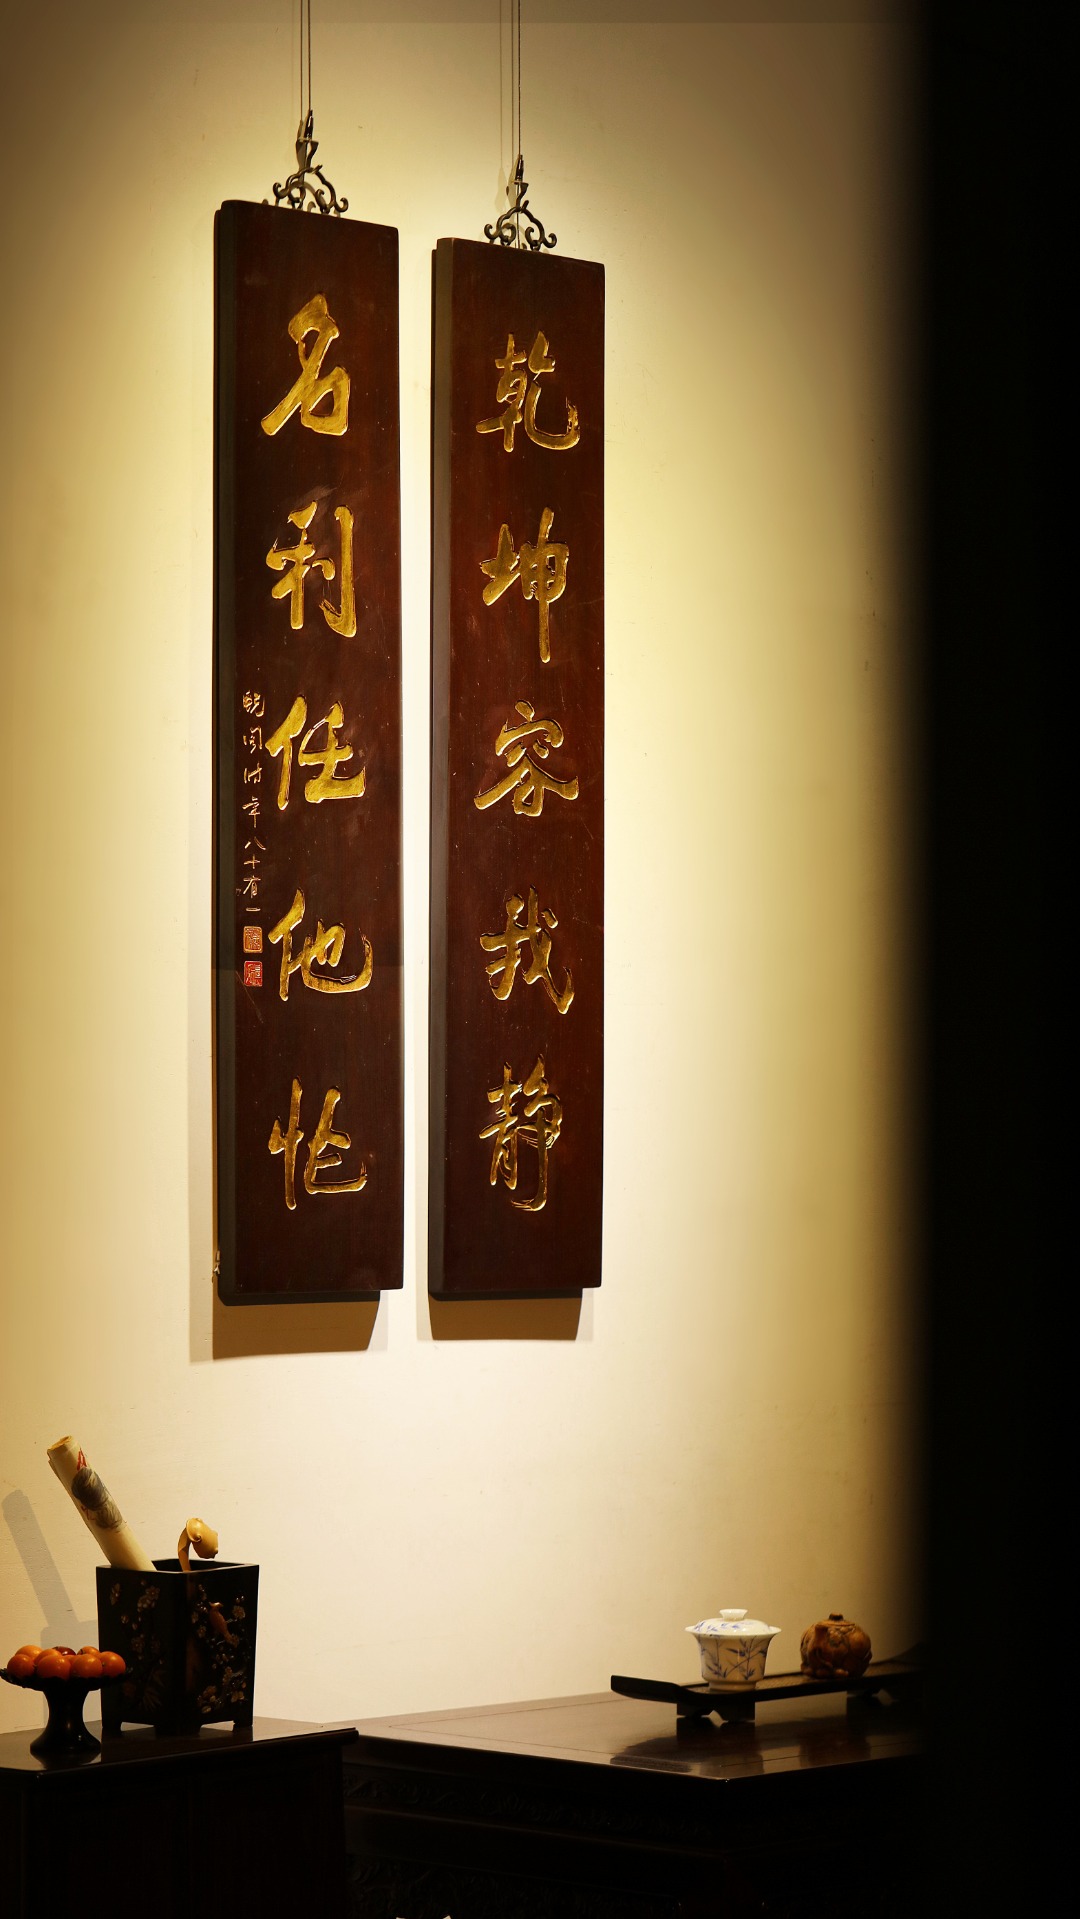 乾坤容我静
名利任他忙
晓阁时年八十有一